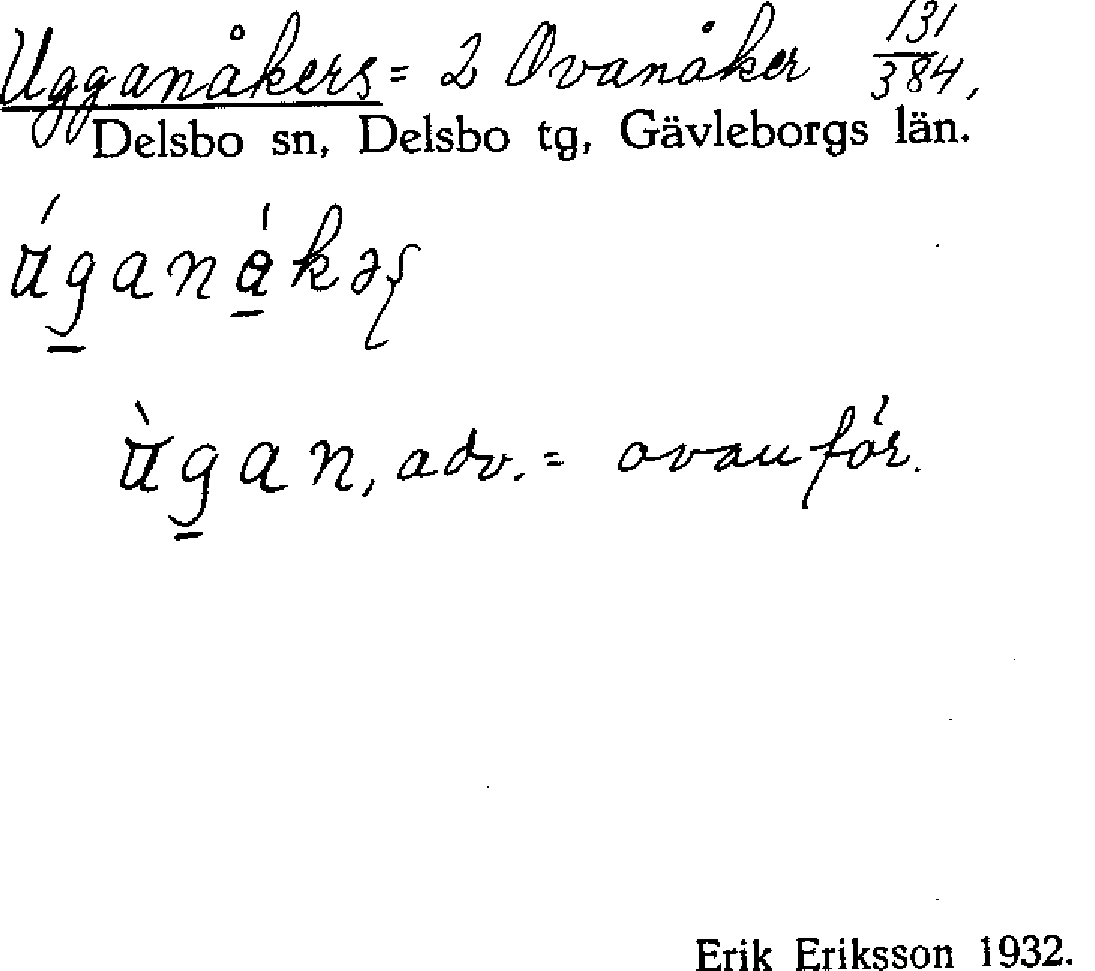 Ugganåkers = 2 Ovanåker 131/384,
Delsbo sn, Delsbo tg, Gävleborgs län.
úganákəʂ
ùgan, adv. = ovanför.
Erik Eriksson 1932.